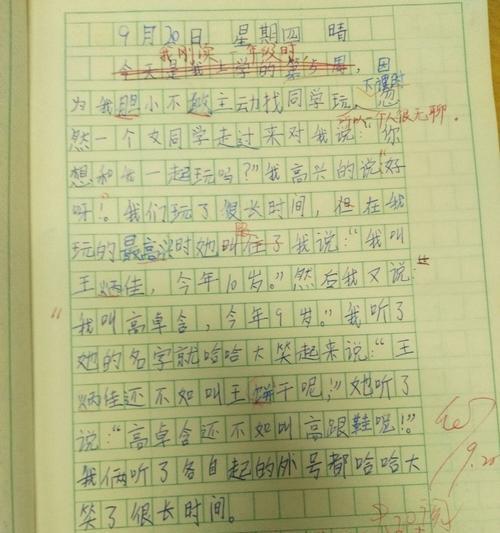 9月20日 星期四 晴
我刚读一年级时
今天是我上学的第5周,因
为我胆小不敢主动找同学玩,忽
下课时
所以一个人很无聊。
然一个女同学走过来对我说:“你
想和我一起玩吗?”我高兴的说“好
呀!”我们玩了很长时间,但在我
玩的最高兴时她叫住了我说:“我叫
王炳佳,今年10岁。”然后我又说:
“我叫高卓含,今年9岁。”我听了
她的名字就哈哈大笑起来说:“王
炳佳还不如叫王饼干呢!”她听了
说:“高卓含还不如叫高跟鞋呢!”
我俩听了各自起的外号都哈哈大
笑了很长时间。
9.20